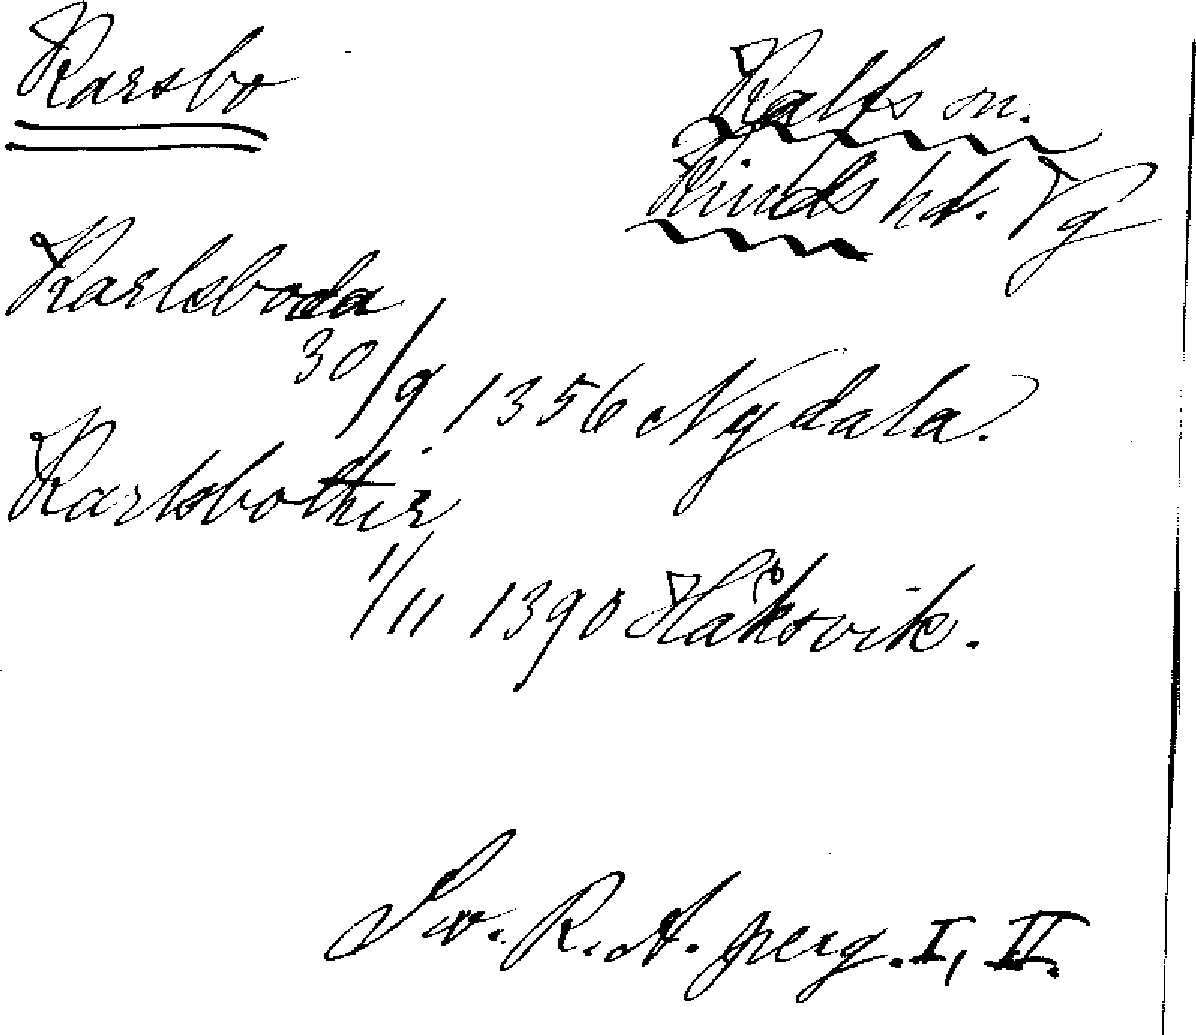 Karsbo
Kalfs sn.
Kinds hd. Vg
Karlsboda
30/9 1356 Nydala.
Karlsbothir
1/11 1390 Håksvik.
Sv. R. A. perg. I, II.